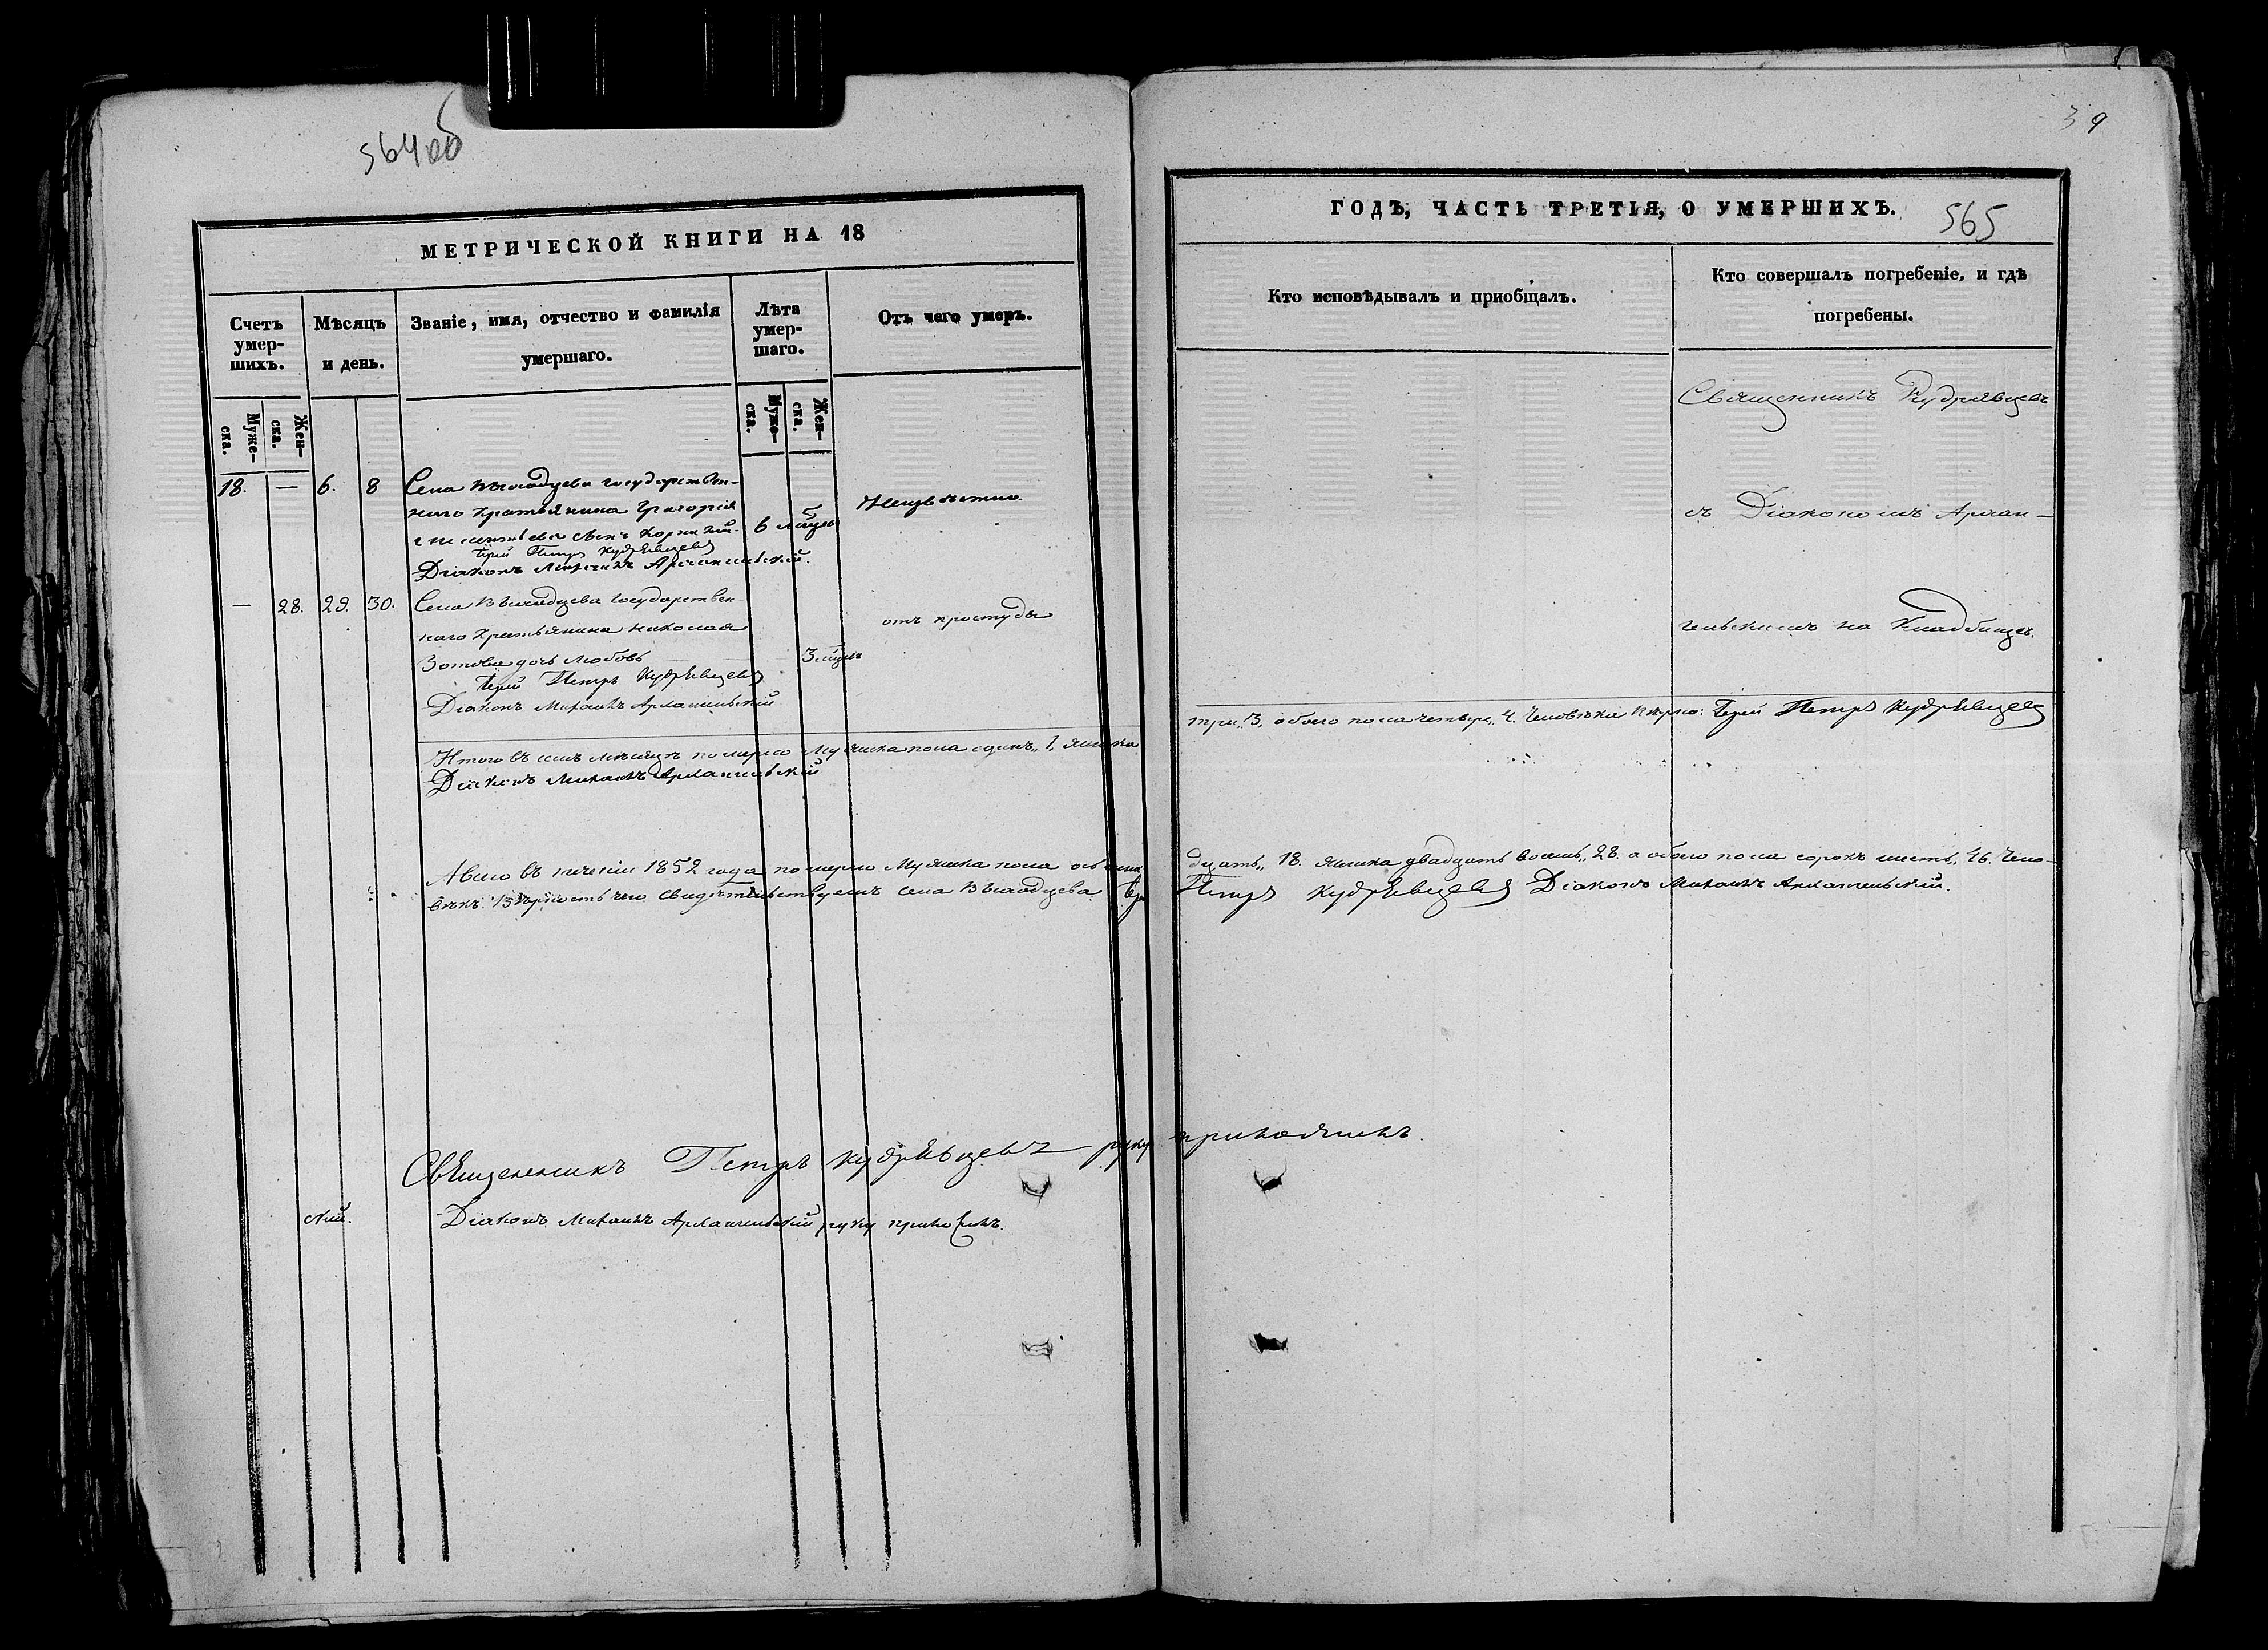 564об
МЕТРИЧЕСКОЙ КНИГИ НА 18
Счетъ умер-шихъ.
Мѣсяцъ и день.
Званіе, имя, отчество и фамилія умершаго.
Лѣта умер-шаго.
Отъ чего умеръ.
Муже-ска.
Жен-ска.
Муже-ска.
Жен-ска.
18. — 6. 8 Села Выходцева государствен-
наго крестьянина Григорія
сынъ Корнилій. 6 Неизвѣстно.
Іерей Петръ Кудрявцевъ
Діаконъ Михаилъ Архангельскій.
— 28. 29. 30. Села Выходцева государствен
наго крестьянина Николая отъ простуды
Зотова дочь Любовь 3 мѣцъ
Іерей Петръ Кудрявцевъ
Діаконъ Михаилъ Архангельскій
Итого въ семъ мѣсяцѣ померло мужеска пола одинъ „1, женска
Діаконъ Михаилъ Архангельскій
А всего въ теченіи 1852 года померло мужеска пола осьмна
вѣкъ. Въ вѣрности чего свидѣтельствуемъ села Выходцева Іерей
Священникъ Петръ Кудрявцевъ руку
скій. Діаконъ Михаилъ Архангельскій руку приложилъ.
39
ГОДЪ, ЧАСТЬ ТРЕТІЯ, О УМЕРШИХЪ.
565
Кто исповѣдывалъ и приобщалъ.
Кто совершалъ погребеніе, и гдѣ погребены.
Священникъ Кудрявцевъ
съ Діакономъ Архан-
гельскимъ на Кладбищѣ.
три „3, обоего пола четыре „4. человѣка вѣрно: Іерей Петръ Кудрявцевъ
дцать „18. женска двадцать восемь „28. а обоего пола сорокъ шесть „46. чело-
Петръ Кудрявцевъ Діаконъ Михаилъ Архангельскій.
приложилъ.